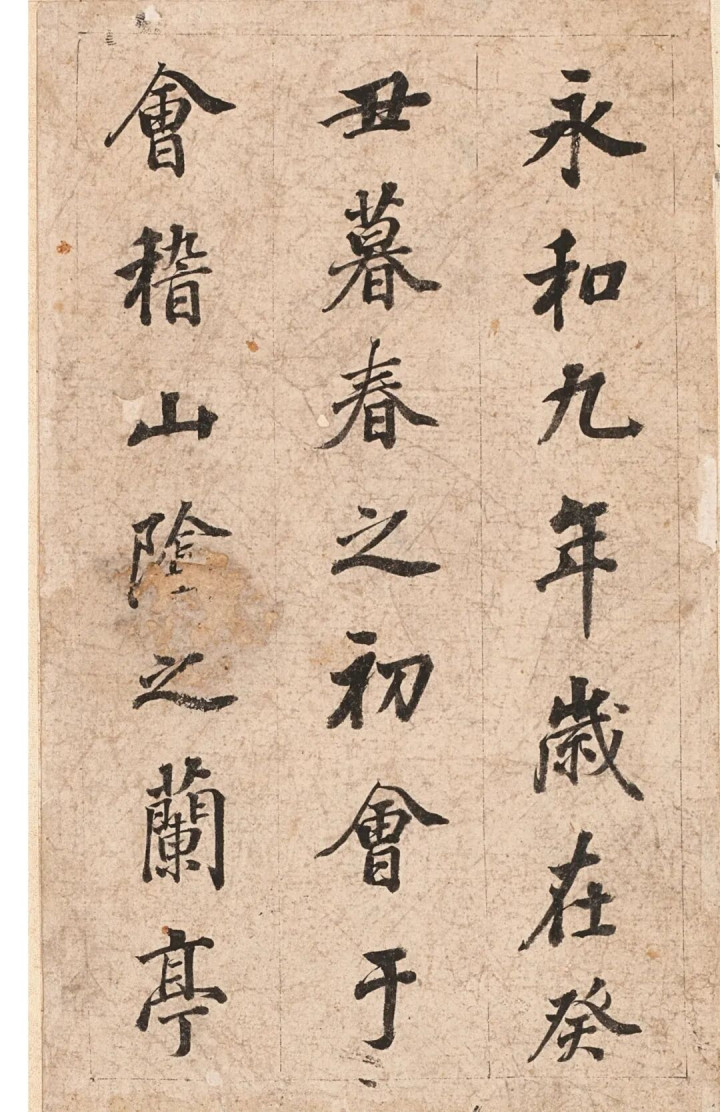 永和九年歲在癸
丑暮春之初會于
會稽山陰之蘭亭